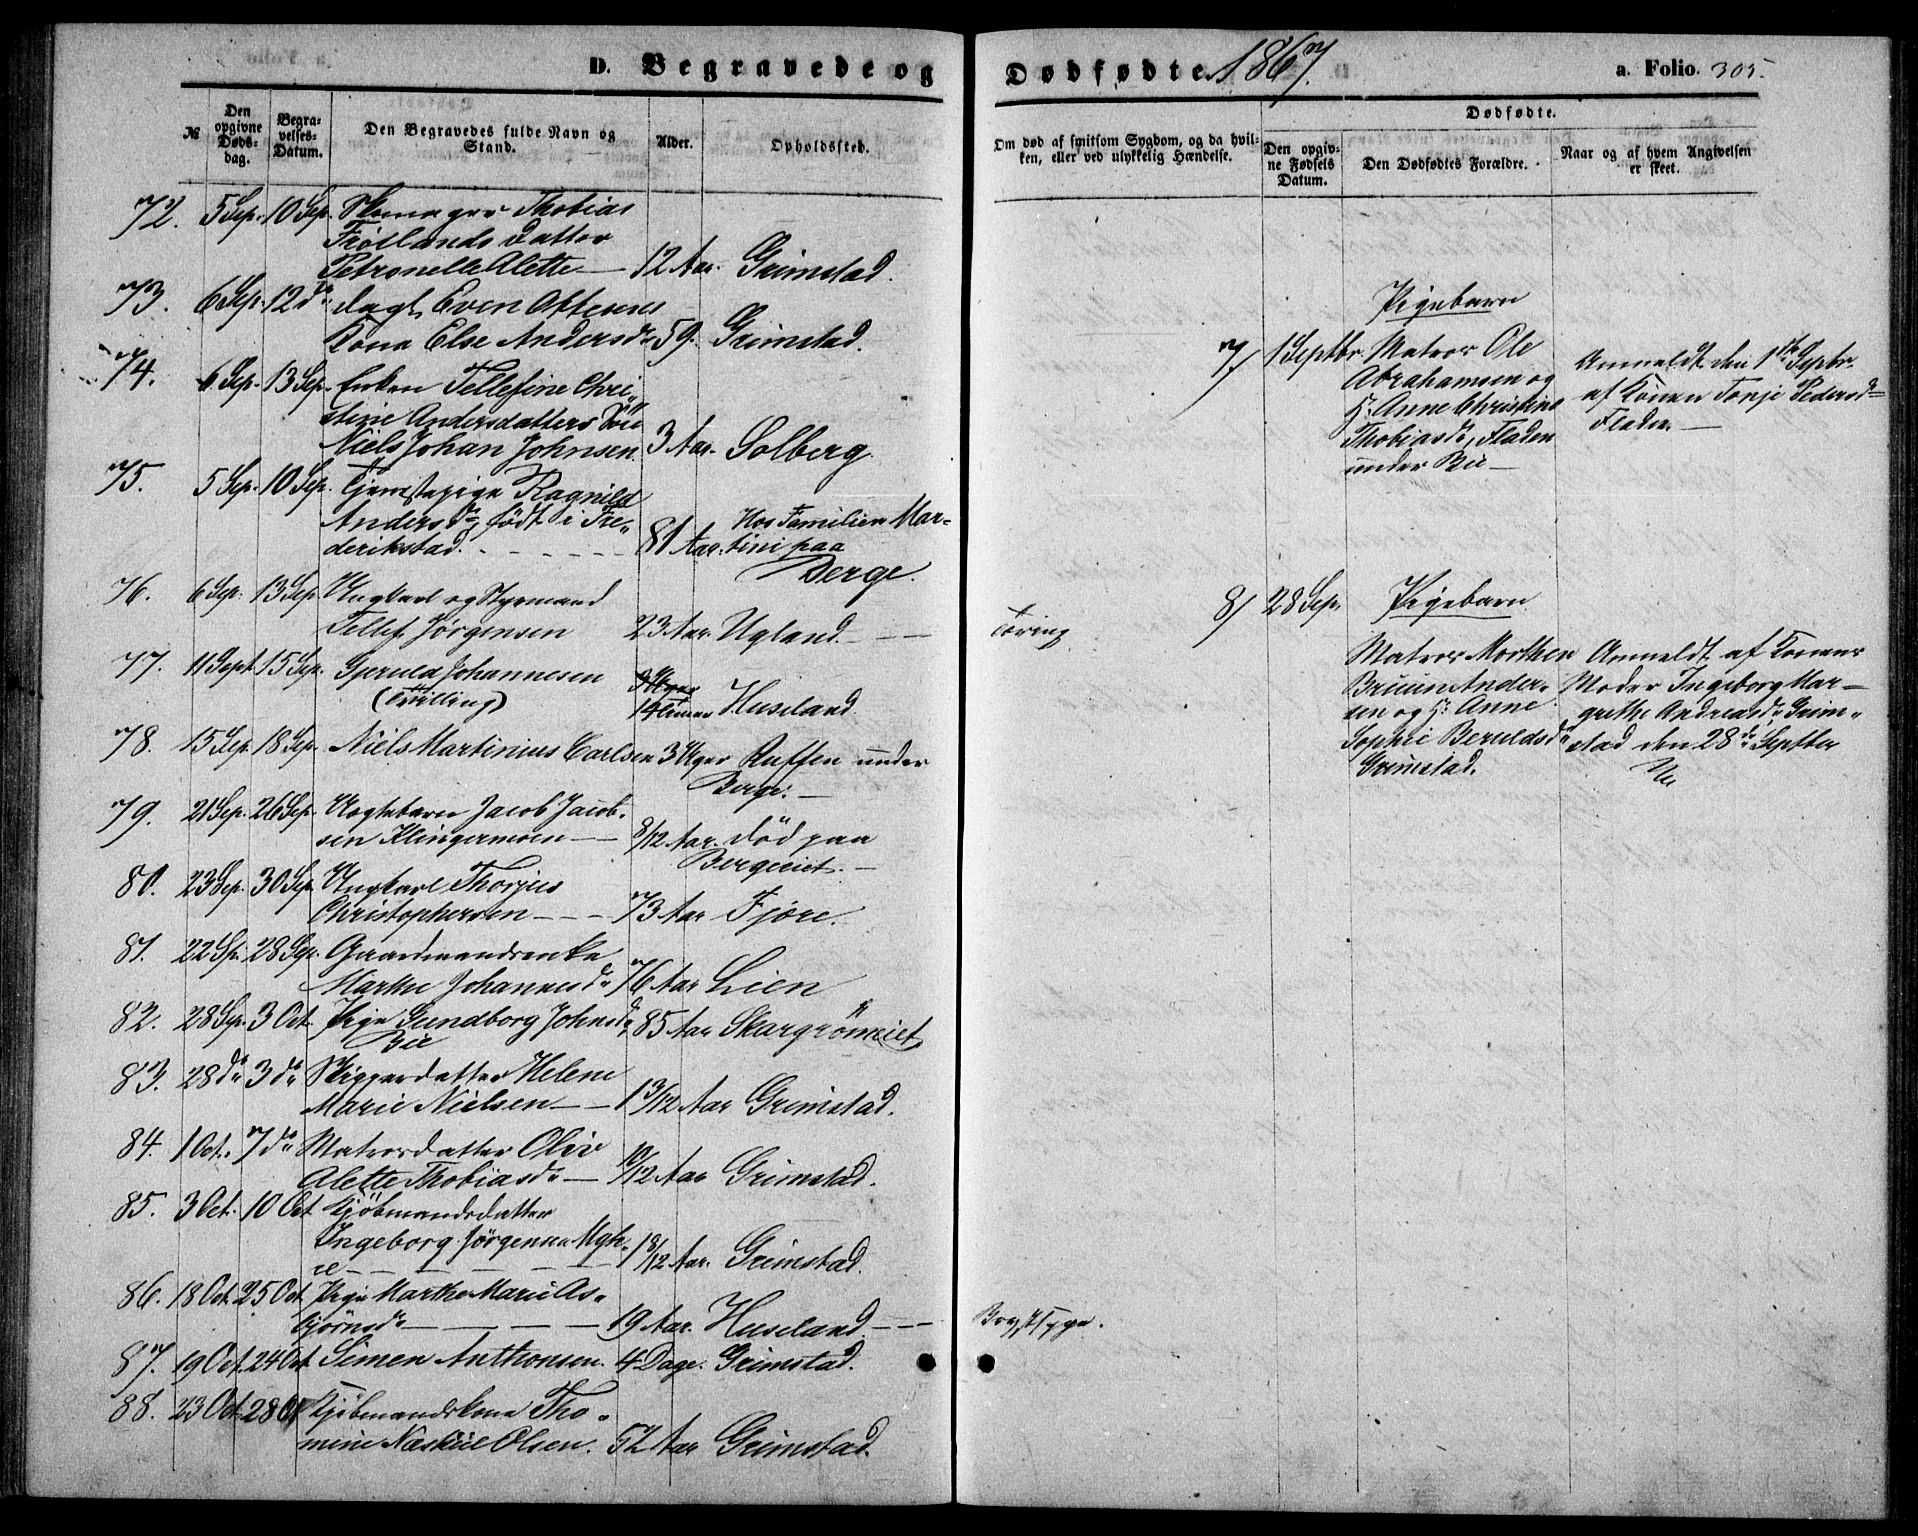 D. Begravede og Dødfødte 1867. a. Folio. 305.
№
Den opgivne Døds-dag.
Begra-velses-Datum.
Den Begravedes fulde Navn og Stand.
Alder.
Opholdssted.
Om død af smitsom Sygdom, og da hvil-ken, eller ved ulykkelig Hændelse.
Dødfødte.
Den opgiv-ne Fødsels Datum.
Den Dødfødtes Forældre.
Naar og af hvem Angivelsen er skeet.
72. 5 Sep. 10 Sep. Skomager Thobias
Frøilands Datter
Petronelle Alette — 12 Aar. Grimstad.
73. 6 Sep. 12 do Dagl. Even Ottesens
Kona Else Andersd. 59. Grimstad.
74. 6 Sep. 13 Sep. Enken Tellefine Chri-
stine Andersdatters Søn
Niels Johan Johnsen. 3 Aar. Solberg.
75. 5 Sep. 10 Sep. Tjenstepige Ragnild
Andersd. født i Fre-
derikstad. 81 Aar. Hos Familien Mar-
tini paa
Berge.
76. 6 Sep. 13 Sep. Ungkarl og Styrmand
Tellef Jørgensen 23 Aar. Ugland — Tæring
77. 11 Sept 15 Sep. Gjeruld Johannesen
(Tvilling) 14 Timer Huseland
78. 15 Sep. 18 Sep. Niels Martinius Carlsen 3 Uger Ruffen under
Berge. —
79. 21 Sep. 26 Sep. Uægtebarn Jacob Jacob-
sen Klingermoen — 8/12 Aar. død paa
Bergeeiet. —
80. 23 Sep. 30 Sep. Ungkarl Thorjus
Christophersen — 73 Aar Fjære.
81. 22 Sp. 28 Sep. Gaardmandsenke
Marthe Johannesd. 76 Aar Lien
82. 28 Sep. 3 Oct. Pige Gundborg Johnsd.
Bie 85 Aar Skargrømeiet
83. 28 do 3 do Skipperdatter Helene
Marie Nielsen — 1 3/12 Aar Grimstad.
84. 1 Oct. 7 do Matrosdatter Oliv
Alette Thobiasd. — 10/12 Aar Grimstad.
85. 3 Oct. 10 Oct Kjøbmandsdatter
Ingeborg Jørgense Myh-
re — 1 8/12 Aar. Grimstad.
86. 18 Oct. 25 Oct. Pige Marthe Marie As-
bjørnsd. — 19 Aar. Huseland — Brystsyge.
87. 19 Oct 24 Oct Simen Anthonsen. 4 Dage. Grimstad.
88. 23 Oct. 28 Oct Kjøbmandskone Tho-
mine Næskiil Olsen. 52 Aar Grimstad.
7/ 1 Septbr. Pigebarn
Matros Ole
Abrahamsen og
H. Anne Christine
Thobiasd. Fladen
under Bie —
Anmeldt den 1ste Septbr.
af Konen Tonje Pedersd.
Fladen. —
8/ 28 Sep. Pigebarn
Matros Morthen
Bruun Ander-
sen og H. Anne
Sophie Beruldsd.
Grimstad.
Anmeldt af Konens
Moder Ingeborg Mar-
grethe Andreasd. Grim-
stad den 28de Septber